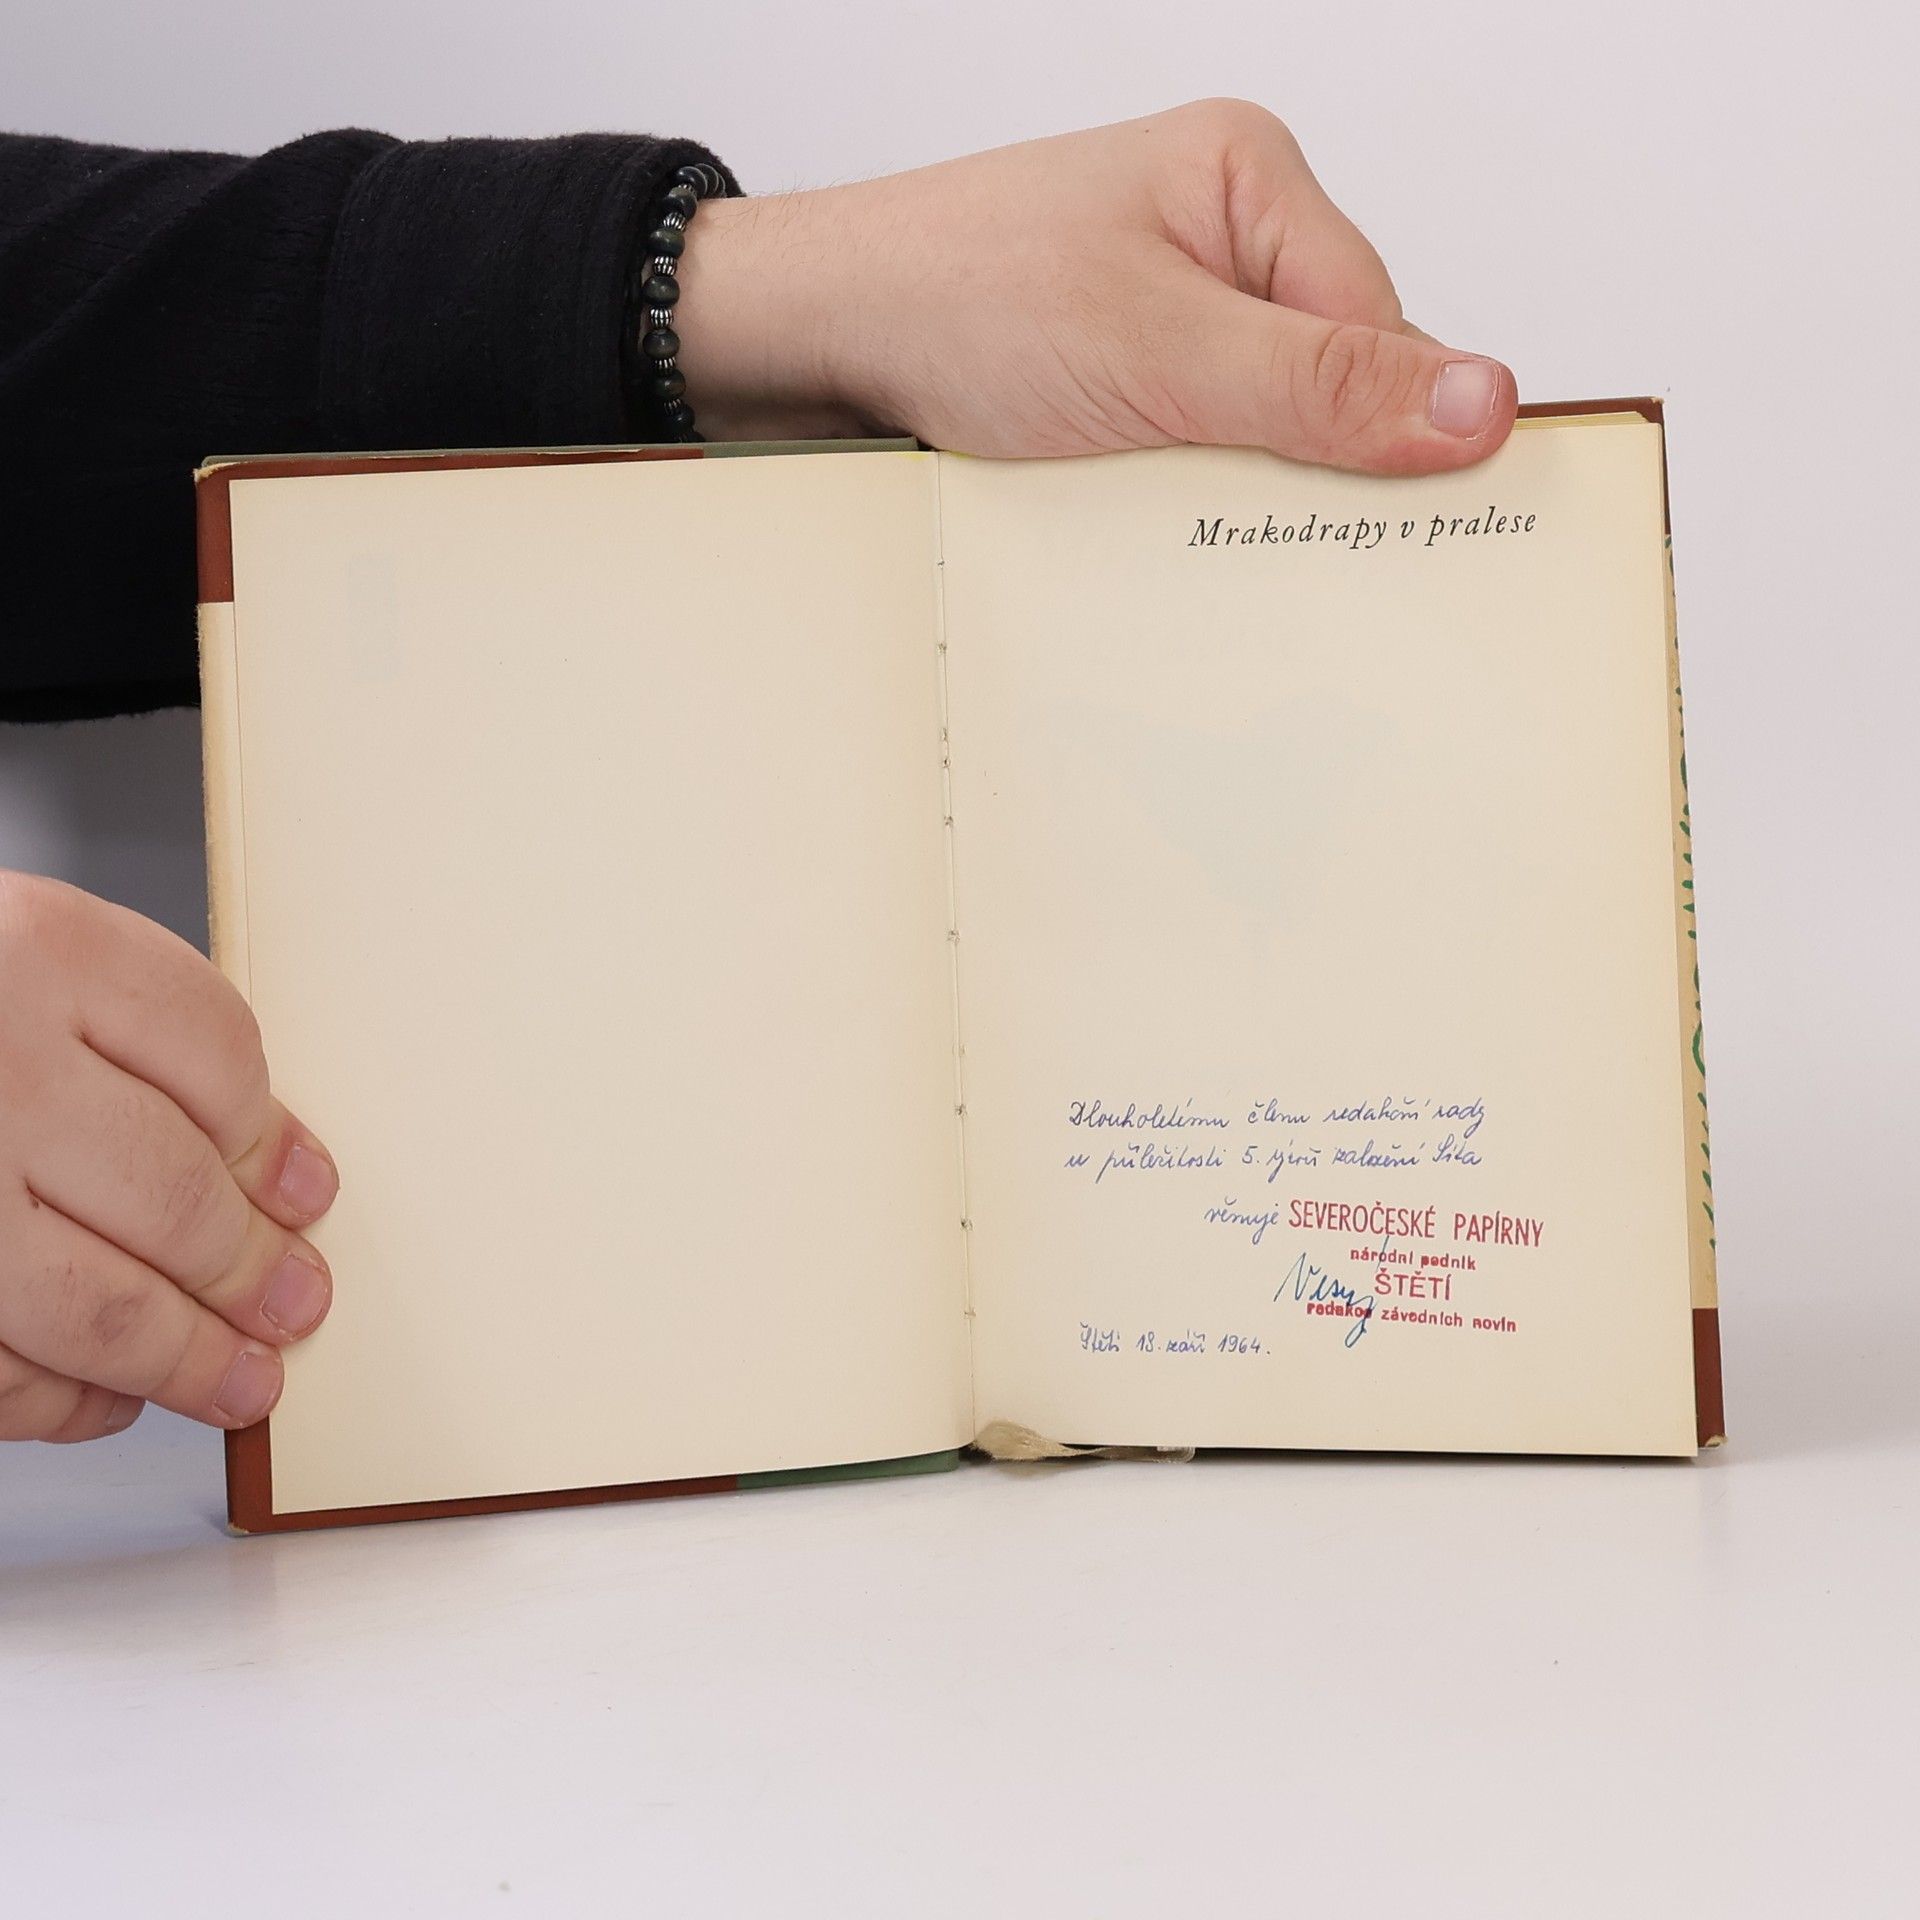 Mrakodrapy v pralese
Dlouholetému členu redakční rady
u příležitosti 5. výročí založení Síta
věnuje SEVEROČESKÉ PAPÍRNY
národní podnik
ŠTĚTÍ
redakce závodních novin
Štětí 18. září 1964.